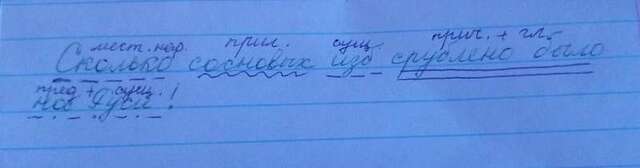 мест. нар. прил. сущ. прич. + гл.
Сколько сосновых изб срублено было
пред + сущ.
на Руси!